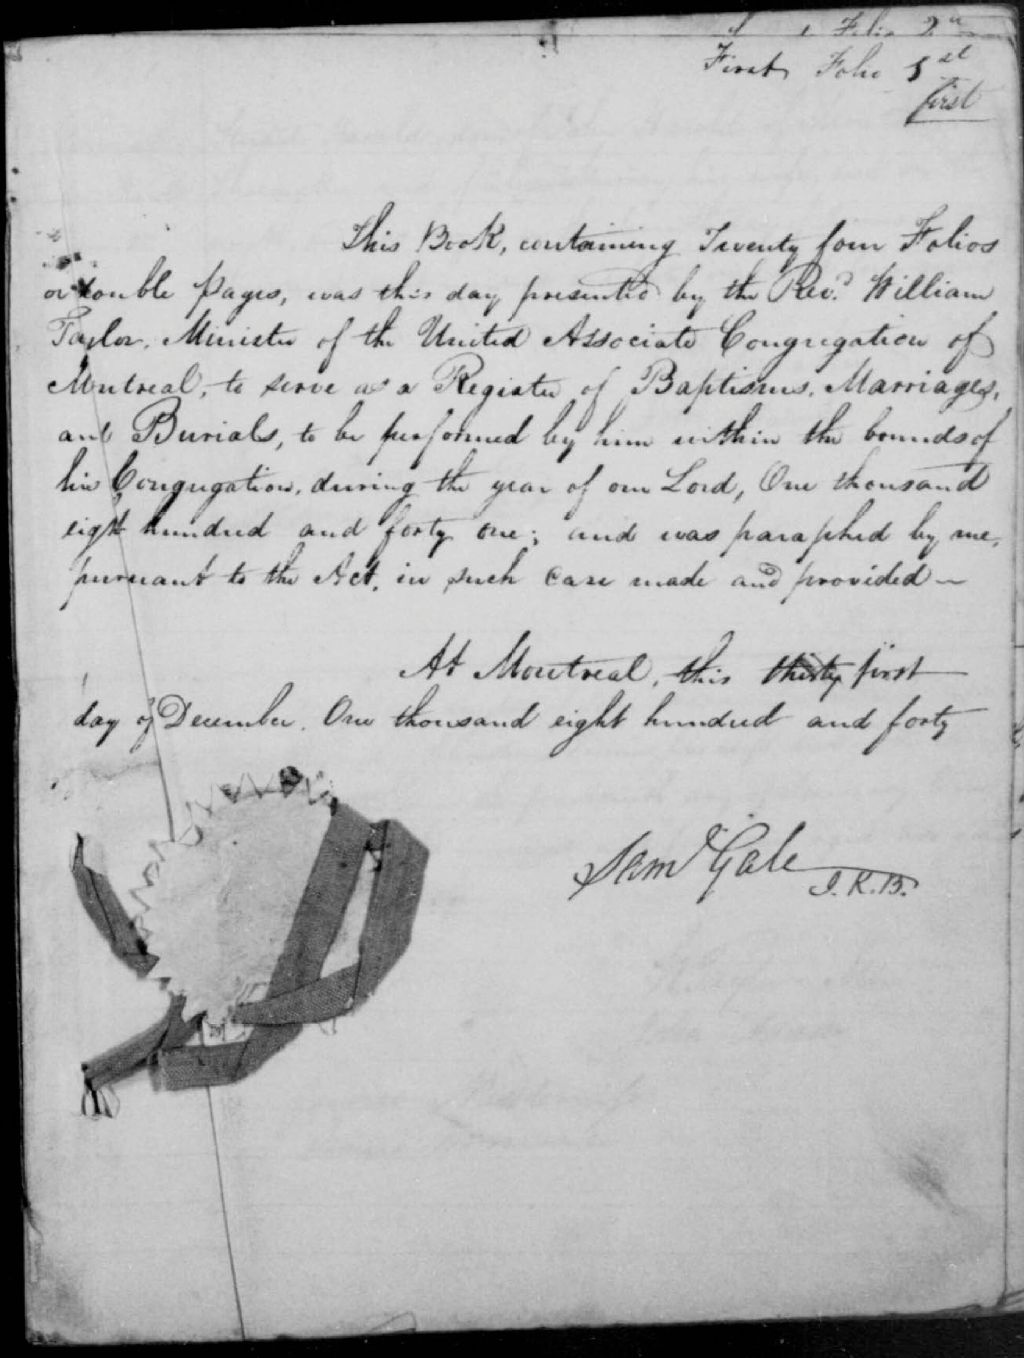 Folio 2d
First Folio 1st
first
This Book, containing Twenty four Folios
or double pages, was this day presented by the Revd. William
Taylor, Minister of the United Associate Congregation of
Montreal, to serve as a Register of Baptisms, Marriages,
and Burials, to be performed by him within the bounds of
his Congregation, during the year of our Lord, One thousand
eight hundred and forty one; and was paraphed by me,
pursuant to the Act, in such case made and provided —
At Montreal, this thirty first
day of December, One thousand eight hundred and forty
Saml Gale
J.K.B.